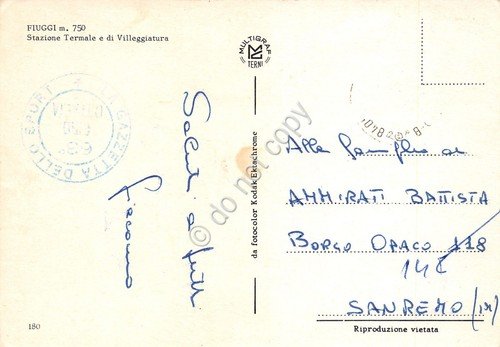 FIUGGI m. 750
Stazione Termale e di Villeggiatura
MULTIGRAF
TERNI
LA GAZZETTA DELLO SPORT
Saluti a tutti
Giacomo
do not copy
da fotocolor Kodak Ektachrome
Alla Famiglia
AMMIRATI BATTISTA
BORGO OPACO 118
14E
SANREMO (IM)
Riproduzione vietata
180